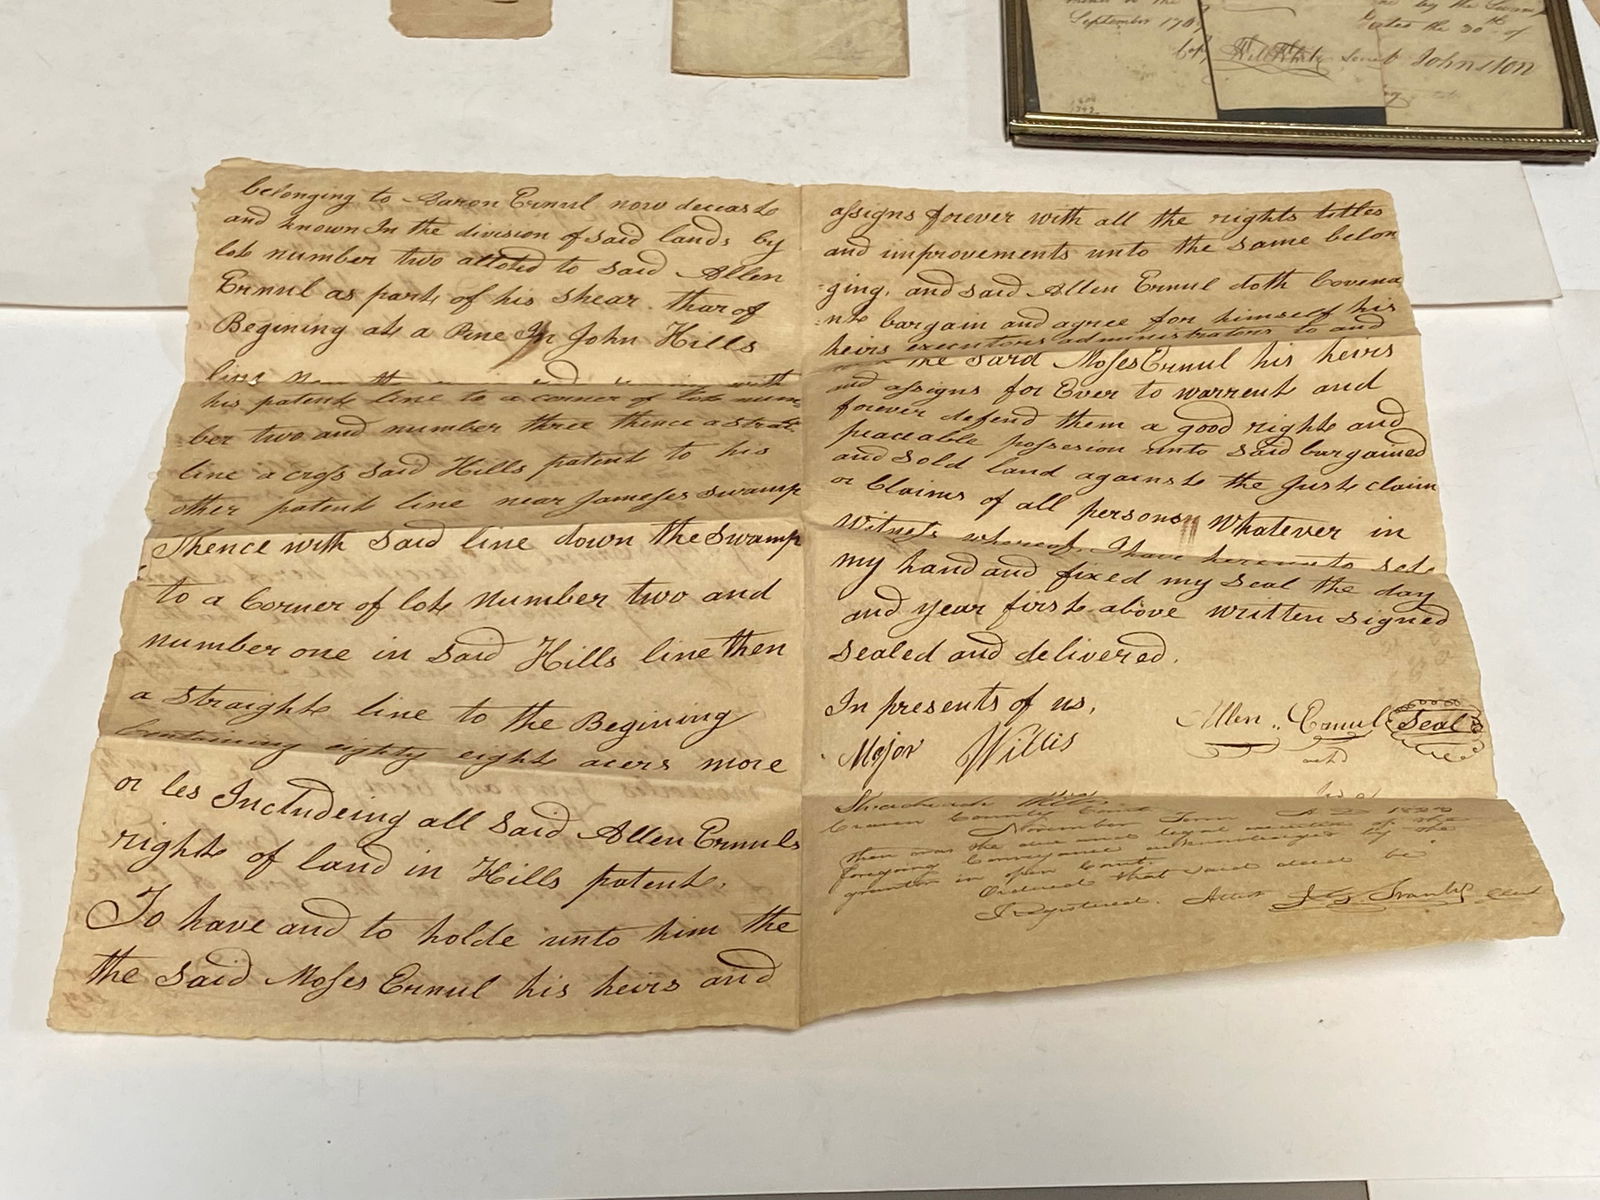 September 179
by the
Dated the 30th of
Will White Secret
Johnston
belonging to Aaron Ernul now deceaste
and known In the division of said lands by
lot number two alloted to said Allen
Ernul as part of his shear. thar of
Begining at a Pine In John Hills
line
his patent line to a corner of lote num
ber two and number three thence a strat
line a cross said Hills patent to his
other patent line near Jameses swamp
Thence with said line down the swamp
to a Corner of lote number two and
number one in said Hills line then
a straight line to the Begining
Containing eighty eight acers more
or les Includeing all said Allen Ernuls
right of land in Hills patent.
To have and to holde unto him the
the said Moses Ernul his heirs and
assigns forever with all the rights titles
and improvements unto the same belon
ging, and said Allen Ernul doth Covena
nt bargain and agree for himself his
heirs executors administrators to and
the said Moses Ernul his heirs
and assigns for Ever to warrent and
forever defend them a good right and
peaceable possesion unto said bargained
and sold land against the Just claim
or Claims of all persons Whatever in
Witness whereof I have hereunto set
my hand and fixed my seal the day
and year first above written signed
sealed and delivered.
In presents of us,
Allen Ernul Seal
Major Willis
Craven County Court
November Term A D
then was the due and legal execution of the
foregoing Conveyance acknowledged by the
grantor in open Court.
Ordered that said deed be
Registered. Attest J G Stanly Clerk